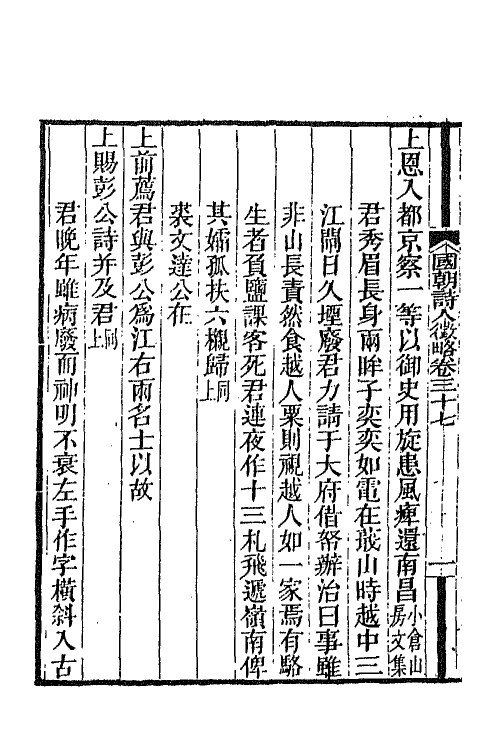 國朝詩人徵略卷三十七
一
上恩入都京察一等以御史用旋患風痺還南昌小倉山房文集
君秀眉長身兩眸子奕奕如電在蕺山時越中三
江閘日久堙廢君力請于大府借帑辦治曰事雖
非山長責然食越人粟則視越人如一家焉有駱
生者負鹽課客死君連夜作十三札飛遞嶺南俾
其孀孤扶六櫬歸同上
裘文達公在
上前薦君與彭公為江右兩名士以故
上賜彭公詩并及君同上
君晚年雖病廢而神明不衰左手作字橫斜入古